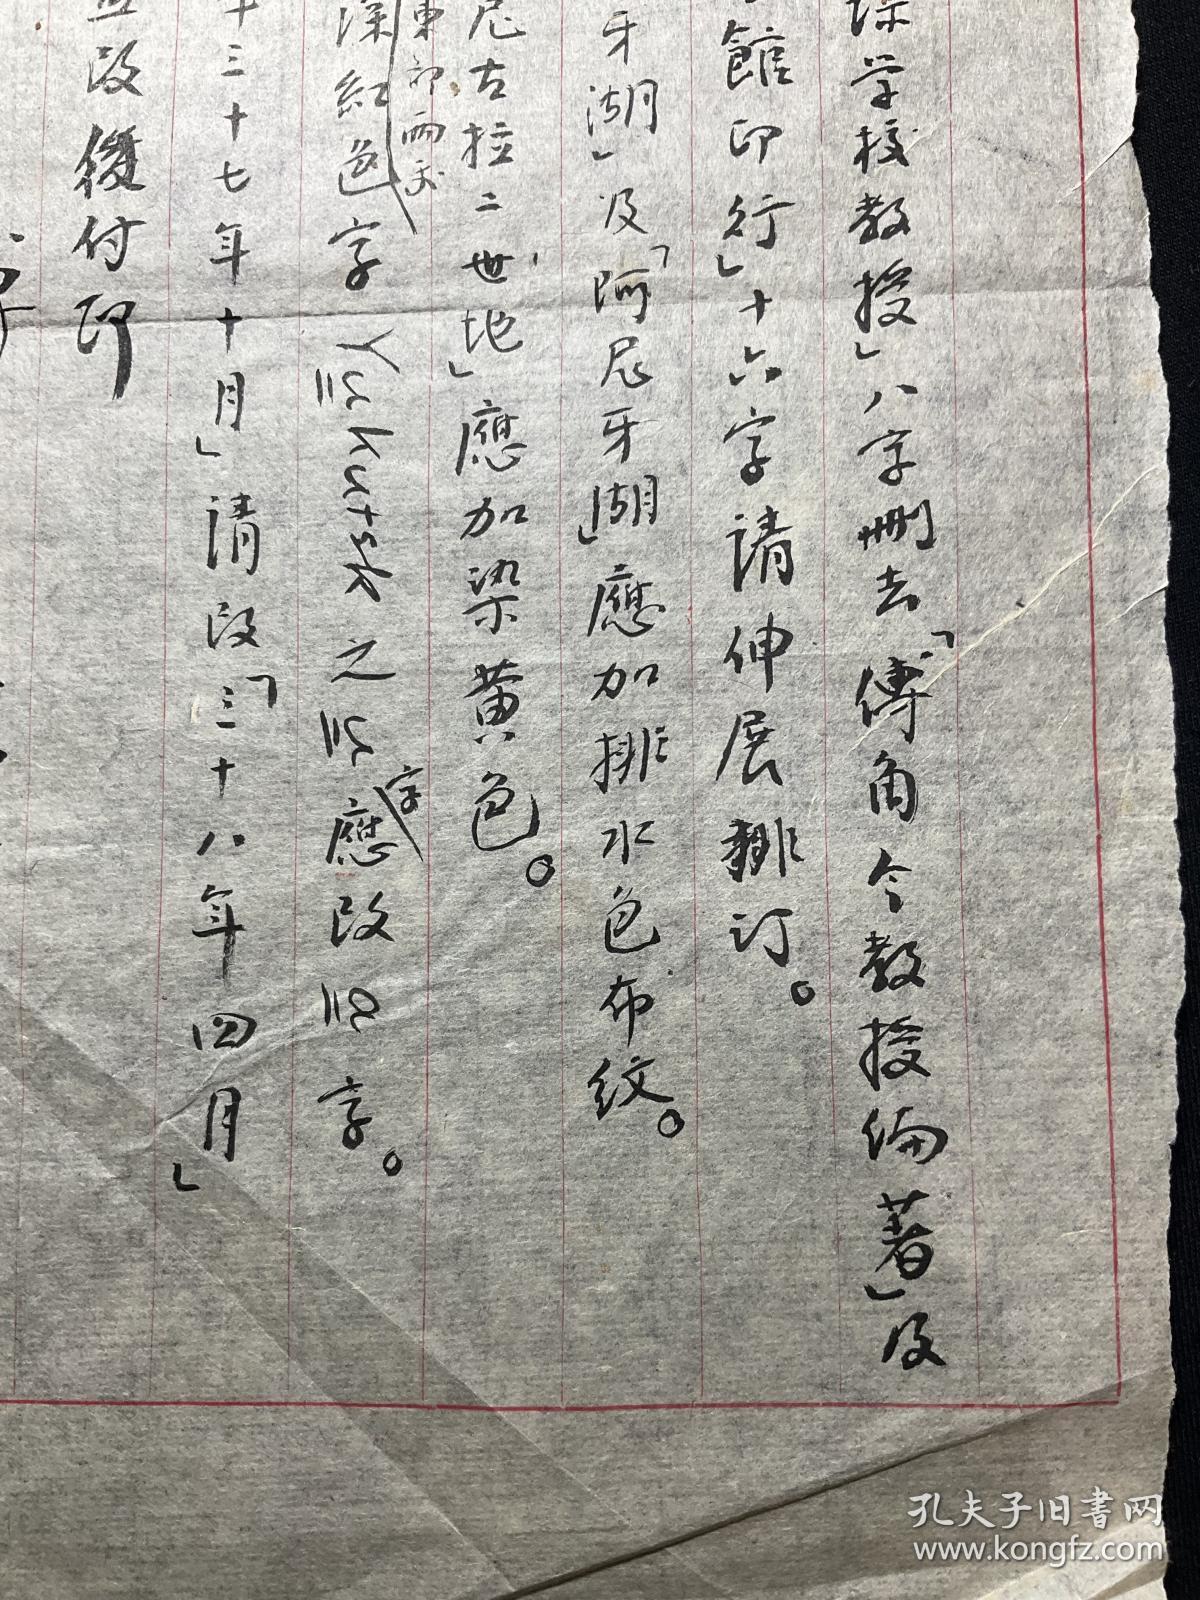 际学校教授」八字删去「傅角今教授编著」及
館印行」十六字請伸展排订。
牙湖」及「阿尼牙湖」應加排水色布紋。
尼古拉二世地」應加染黄色。
東部兩
深紅色字 Yakutsk 之 字應改 字。
十三十七年十月」請改「三十八年四月」
改後付印
孔夫子旧書网
www.kongfz.com